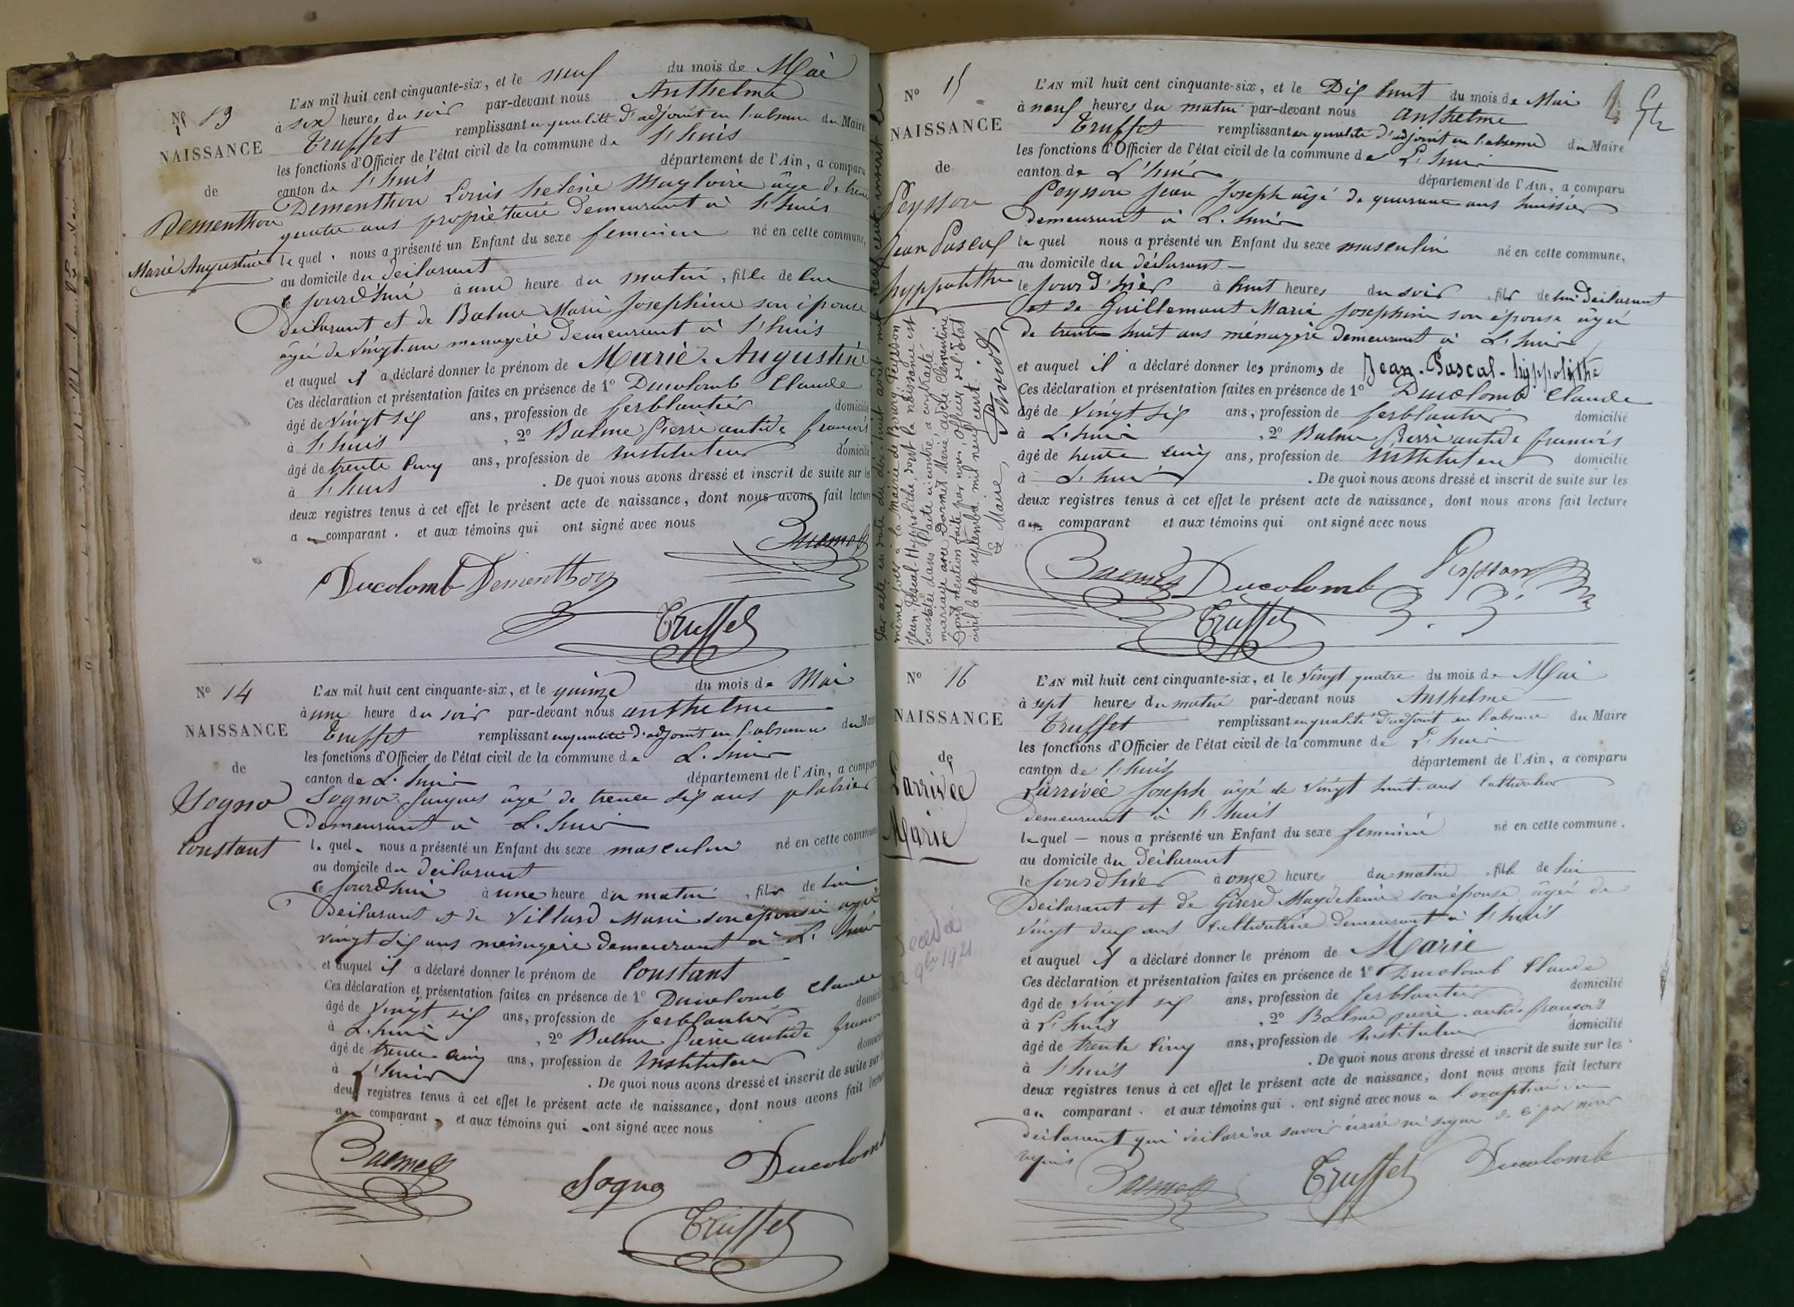 Nº 13
NAISSANCE
de
Dementhon
Marie Augustine
L'AN mil huit cent cinquante-six, et le neuf du mois de Mai
à six heures du soir par-devant nous Anthelme
Truffet remplissant en qualité d'adjoint en l'absence du Maire
les fonctions d'Officier de l'état civil de la commune de St huis
canton de St huis département de l'Ain, a comparu
Dementhon Louis helene Magloire âgé de trente
quatre ans propriétaire demeurant à St huis
lequel nous a présenté un Enfant du sexe feminin né en cette commune,
au domicile du déclarant
ce jourd'hui à une heure du matin, fille de lui
déclarant et de Balme Marie Josephine son épouse
âgée de vingt-un menagère demeurant à St huis
et auquel il a déclaré donner le prénom de Marie-Augustine
Ces déclaration et présentation faites en présence de 1º Ducolomb Claude
âgé de vingt six ans, profession de ferblantier domicilié
à St huis, 2º Balme Pierre antide françois
âgé de trente cinq ans, profession de instituteur domicilié
à St huis. De quoi nous avons dressé et inscrit de suite sur les
deux registres tenus à cet effet le présent acte de naissance, dont nous avons fait lecture
au comparant et aux témoins qui ont signé avec nous
Ducolomb Dementhon
Truffet
Nº 14
NAISSANCE
de
Sogno
Constant
L'AN mil huit cent cinquante-six, et le quinze du mois de Mai
à une heure du soir par-devant nous anthelme
Truffet remplissant en qualité d'adjoint en l'absence du Maire
les fonctions d'Officier de l'état civil de la commune de L'huis
canton de L'huis département de l'Ain, a comparu
Sogno Jacques âgé de trente six ans platrier
demeurant à L'huis
lequel nous a présenté un Enfant du sexe masculin né en cette commune
au domicile du déclarant
ce jourd'hui à une heure du matin, fils de lui
déclarant et de Villard Marie son épouse âgée
vingt six ans ménagère demeurant à L'huis
et auquel il a déclaré donner le prénom de Constant
Ces déclaration et présentation faites en présence de 1º Ducolomb Claude
âgé de vingt six ans, profession de ferblantier domicilié
à L'huis, 2º Balme Pierre antide françois
âgé de trente cinq ans, profession de instituteur domicilié
à L'huis. De quoi nous avons dressé et inscrit de suite sur les
deux registres tenus à cet effet le présent acte de naissance, dont nous avons fait lecture
au comparant, et aux témoins qui ont signé avec nous
Sogno Ducolomb
Truffet
Nº 15
NAISSANCE
de
Peysson
Jean Pascal
hyppolithe
L'AN mil huit cent cinquante-six, et le Dix huit du mois de Mai
à neuf heures du matin par-devant nous anthelme
Truffet remplissant en qualité d'adjoint en l'absence du Maire
les fonctions d'Officier de l'état civil de la commune de L'huis
canton de L'huis département de l'Ain, a comparu
Peysson Jean Joseph âgé de quarante ans huissier
demeurant à L'huis
lequel nous a présenté un Enfant du sexe masculin né en cette commune,
au domicile du déclarant
le jour d'hier à huit heures du soir, fils de lui déclarant
et de Guillemant Marie Josephine son épouse âgée
de trente huit ans ménagère demeurant à L'huis
et auquel il a déclaré donner les prénoms de Jean-Pascal-hyppolithe
Ces déclaration et présentation faites en présence de 1º Ducolomb Claude
âgé de vingt six ans, profession de ferblantier domicilié
à L'huis, 2º Balme Pierre antide françois
âgé de trente cinq ans, profession de instituteur domicilié
à L'huis. De quoi nous avons dressé et inscrit de suite sur les
deux registres tenus à cet effet le présent acte de naissance, dont nous avons fait lecture
au comparant et aux témoins qui ont signé avec nous
Ducolomb Peysson
Truffet
Par acte en date du dix huit août mil neuf cent inscrit le
même jour à la mairie de Peysson
Jean Pascal Hyppolithe dont la naissance est
constatée dans l'acte ci-contre a contracté
mariage avec Marie adèle Clementine
Dont mention faite par nous officier de l'état
civil le dix septembre mil neuf cent
Le Maire,
Nº 16
NAISSANCE
de
Larrivée
Marie
décédé
9bre 1921
L'AN mil huit cent cinquante-six, et le vingt quatre du mois de Mai
à sept heures du matin par-devant nous Anthelme
Truffet remplissant en qualité d'adjoint en l'absence du Maire
les fonctions d'Officier de l'état civil de la commune de L'huis
canton de L'huis département de l'Ain, a comparu
Larrivée Joseph âgé de vingt huit ans cultivateur
demeurant à L'huis
lequel nous a présenté un Enfant du sexe feminin né en cette commune,
au domicile du déclarant
le jourd'hier à onze heures du matin, fille de lui
déclarant et de Girerd Magdeleine son épouse âgée de
vingt deux ans cultivatrice demeurant à L'huis
et auquel il a déclaré donner le prénom de Marie
Ces déclaration et présentation faites en présence de 1º Ducolomb Claude
âgé de vingt six ans, profession de ferblantier domicilié
à L'huis, 2º Balme pierre antide françois
âgé de trente cinq ans, profession de instituteur domicilié
à L'huis. De quoi nous avons dressé et inscrit de suite sur les
deux registres tenus à cet effet le présent acte de naissance, dont nous avons fait lecture
au comparant et aux témoins qui ont signé avec nous a l'exception du
déclarant qui déclare ne savoir écrire ni signer de ce par nous
requis
Truffet Ducolomb